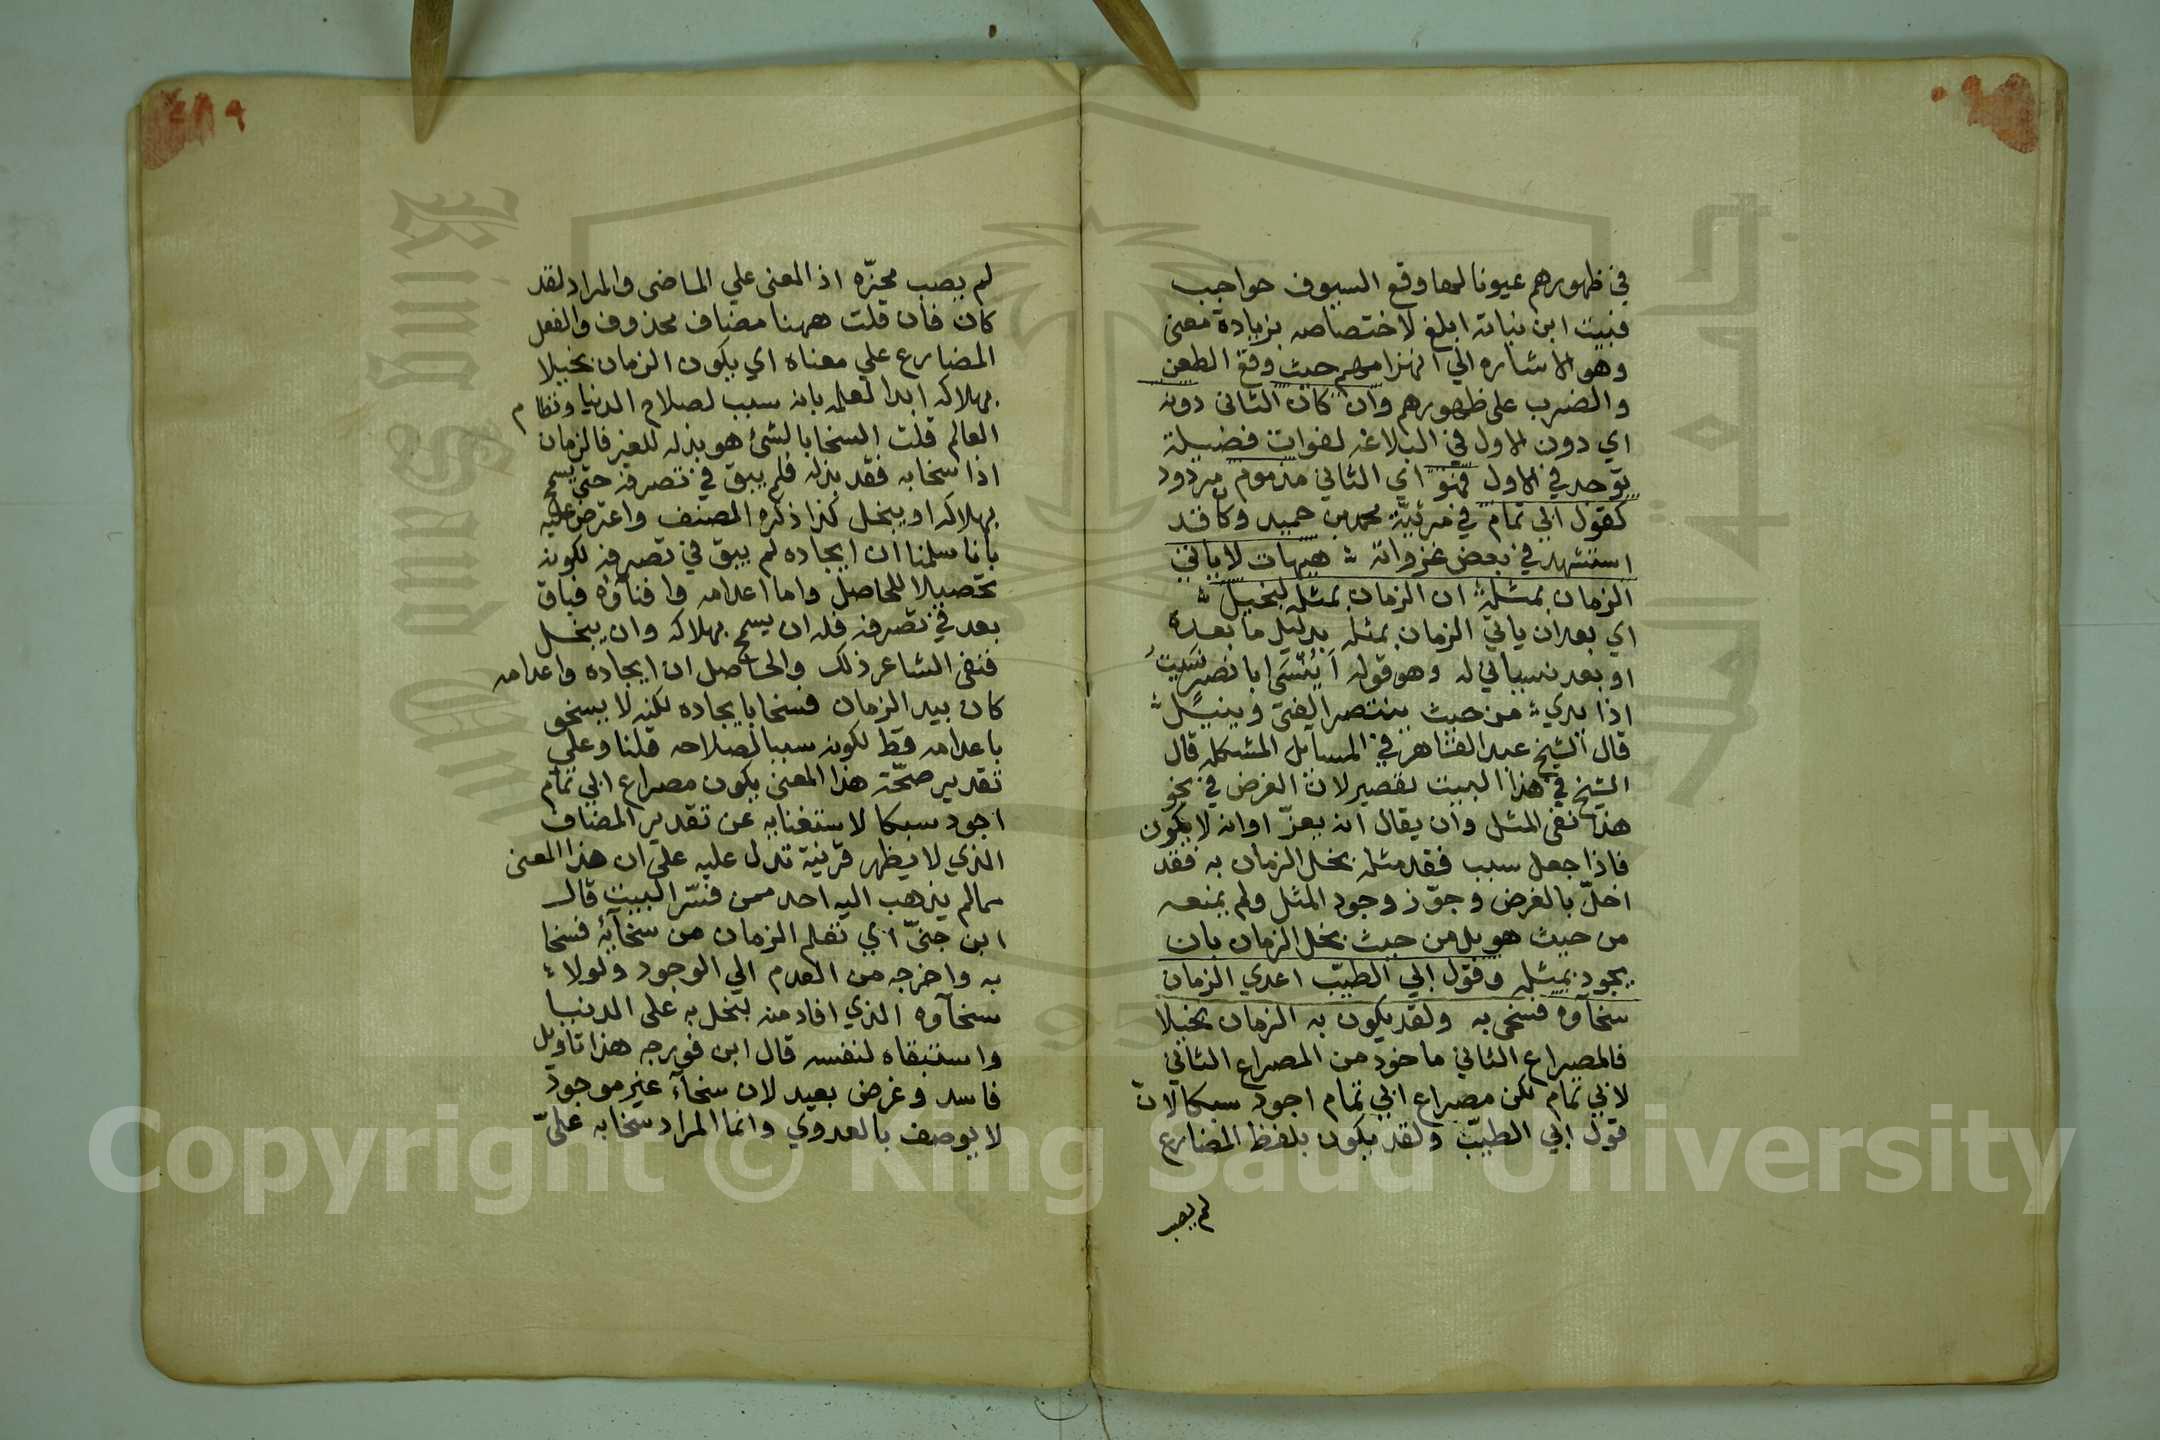 في ظهورهم عيونا لها وقع السيوف حواجب
فبيت ابن نباته ابلغ لاختصاصه بزيادة معنى
وهو الاشاره الي انهزامهم حيث وقع الطعن
والضرب على ظهورهم وان كان الثانى دونه
اي دون الاول في البلاغه لفوات فضيلة
توجد في الاول فهو اي الثاني مذموم مردود
كقول ابي تمام في مرثيّة محمد بن حميد وكان قد
استشهد في بعض غزواته هيهات لا ياتي
الزمان بمثله ان الزمان بمثله لبخيل
اي بعد ان ياتي الزمان بمثله بدليل ما بعده
او بعد نسياني له وهو قوله اَيُنْسَى ابا نصر نَسِيتُ
اذا يدي من حيث ينتصر الفتى وينيل
قال الشيخ عبد القاهر في المسايل المشكله قال
الشيخ في هذا البيت تقصير لان الغرض في نحو
هذا نفى المثل وان يقال انه يعزّ او انه لا يكون
فاذا جعل سبب فقد مثله بخل الزمان به فقد
اخلّ بالغرض وجوّز وجود المثل ولم يمنعه
من حيث هو بل من حيث بخل الزمان بان
يجود بمثله وقول ابي الطيّب اعدي الزمان
سخآوه فسخى به ولقد يكون به الزمان بخيلا
فالمصراع الثاني ماخوذ من المصراع الثاني
لابي تمام لكن مصراع ابي تمام اجود سبكا لانّ
قول ابي الطيّب ولقد يكون بلفظ المضارع
لم يصب
لم يصب محزّه اذ المعنى علي الماضى والمراد لقد
كان فان قلت ههنا مضاف محذوف والفعل
المضارع علي معناه اي يكون الزمان بخيلا
بهلاكه ابدا لعلمه بانه سبب لصلاح الدنيا ونظام
العالم قلت السخا بالشئ هو بذله للغير فالزمان
اذا سخا به فقد بذله فلم يبق في تصرفه حتى يسمح
بهلاكه او يبخل كذا ذكره المصنف واعترض عليه
بانا سلمنا ان ايجاده لم يبق في تصرفه لكونه
تحصيلا للحاصل واما اعدامه وافنآؤه فباق
بعد في تصرفه فله ان يسمح بهلاكه وان يبخل
فنفى الشاعر ذلك والحاصل ان ايجاده واعدامه
كان بيد الزمان فسخا بايجاده لكنه لا يسخو
باعدامه قط لكونه سببا لصلاحه قلنا وعلي
تقدير صحّة هذا المعنى يكون مصراع ابي تمام
اجود سبكا لاستغنايه عن تقدير المضاف
الذي لا يظهر قرينة تدل عليه على ان هذا المعنى
مما لم يذهب اليه احد ممن فسّر البيت قال
ابن جنّي اي تعلم الزمان من سخآئه فسخا
به واخرجه من العدم الي الوجود ولولا
سخآوه الذي افاد منه لبخل به على الدنيا
واستبقاه لنفسه قال ابن فورجه هذا تاويل
فاسد وغرض بعيد لان سخآء غير موجود
لا يوصف بالعدوي وانما المراد سخا به عليّ
Copyright © King Saud University